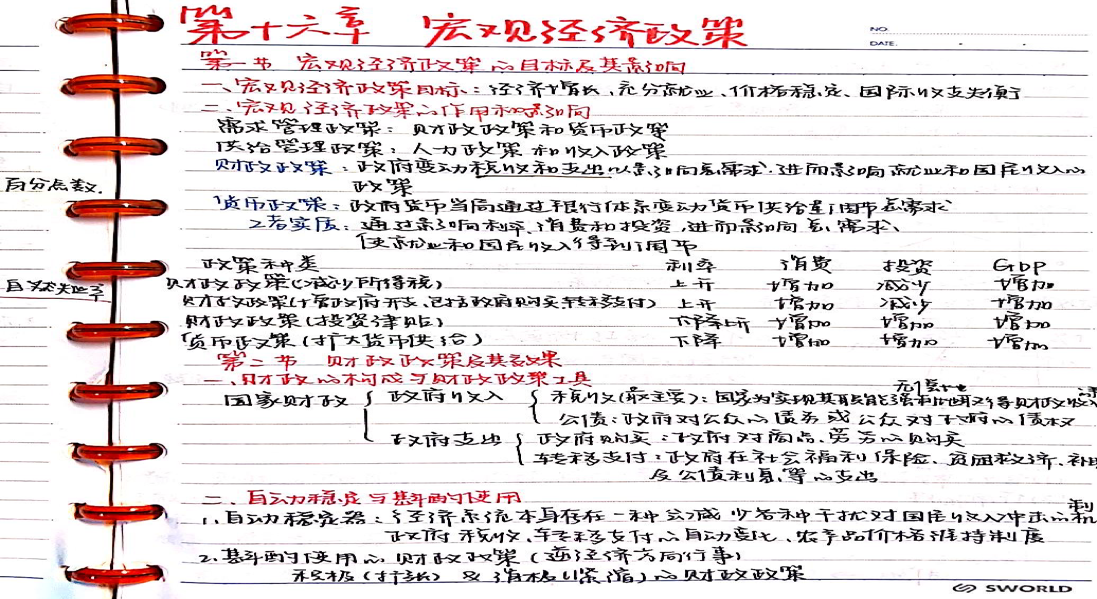 第十六章 宏观经济政策
NO.
DATE.
第一节 宏观经济政策的目标及其影响
一、宏观经济政策目标：经济增长、充分就业、价格稳定、国际收支失衡
二、宏观经济政策的作用和影响
需求管理政策：财政政策和货币政策
供给管理政策：人力政策和收入政策
财政政策：政府变动税收和支出以影响总需求.进而影响就业和国民收入的
政策
百分点数.
货币政策：政府货币当局通过银行体系变动货币供给量调节总需求
2者实质：通过影响利率、消费和投资,进而影响总需求、
使就业和国民收入得到调节
政策种类 利率 消费 投资 GDP
自然失业率
财政政策(减少所得税) 上升 增加 减少 增加
财政政策(增政府开支,包括政府购买转移支付) 上升 增加 减少 增加
财政政策(投资津贴) 上升 增加 增加 增加
货币政策(扩大货币供给) 下降 增加 增加 增加
第二节 财政政策及其效果
一、财政的构成与财政政策工具
无偿地
国家财政 政府收入 税收(最主要)：国家为实现其职能强制地取得财政收入
公债：政府对公众的债务或公众对政府的债权
政府支出 政府购买：政府对商品、劳务的购买
转移支付：政府在社会福利保险、贫困救济、补
及公债利息等的支出
二、自动稳定与斟酌使用
1.自动稳定器：经济系统本身存在一种会减少各种干扰对国民收入冲击的机
制
政府税收、转移支付的自动变化、农产品价格维持制度
2.斟酌使用的财政政策(逆经济方向行事)
积极(扩张)&消极(紧缩)的财政政策
SWORLD